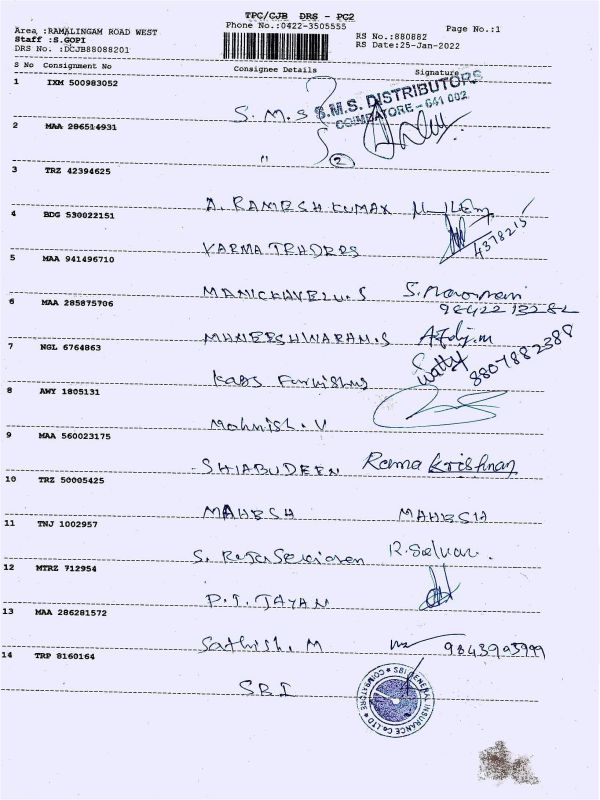 TPC/CJB DRS - PC2
Phone No.:0422-3505555
Page No.:1
Area :RAMALINGAM ROAD WEST
Staff :S.GOPI
DRS No. :DCJB88088201
RS No.:880882
RS Date:25-Jan-2022
S No Consignment No Consignee Details Signature
1 IXM 500983052
S.M.S
S.M.S. DISTRIBUTORS
COIMBATORE - 641 002
2 MAA 286514931
" 2
3 TRZ 42394625
A. RAMESH KUMAR
4 BDG 530022151
VARMA TRADERS 4378215
5 MAA 941496710
MANICKAVELU.S
98422 13282
6 MAA 285875706
MUNEESHWARAN.S
7 NGL 6764863
Kabs Furnishing 8807882388
8 AWY 1805131
Mohnish.V
9 MAA 560023175
SHIABUDEEN Rama Krishnan
10 TRZ 50005425
MAHESH MAHESH
11 TNJ 1002957
S. R.Selvan.
12 MTRZ 712954
P.J. JAYAN
13 MAA 286281572
Sathish.M
14 TRP 8160164
SBI
SBI GENERAL INSURANCE Co. LTD COIMBATORE